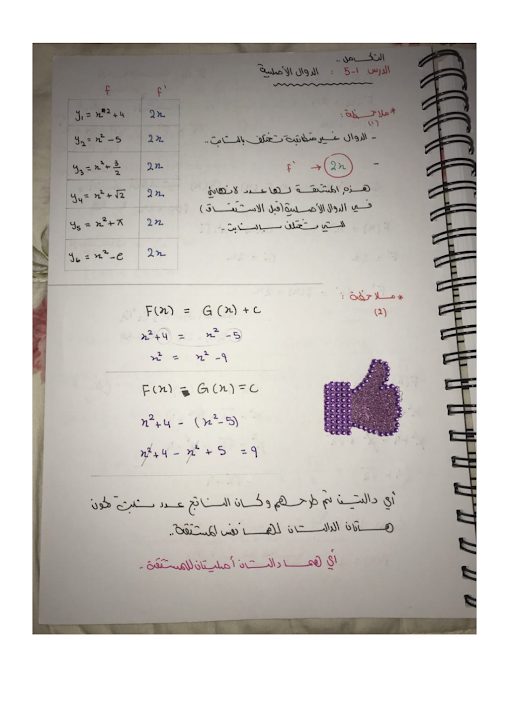 التكامل..
الدرس 1-5 : الدوال الأصلية
f f'
y₁ = x² + 4 2x
y₂ = x² - 5 2x
y₃ = x² + 3/2 2x
y₄ = x² + √2 2x
y₅ = x² + π 2x
y₆ = x² - e 2x
* ملاحظة :
(1)
- الدوال غير متطابقة تختلف بالثابت..
- f' → 2x
هذه المشتقة لها عدد لانهائي
في الدوال الأصلية (قبل الاشتقاق)
التي تختلف بالثابت.
* ملاحظة :
(2)
F(x) = G(x) + c
x² + 4 = x² - 5
x² = x² - 9
F(x) - G(x) = C
x² + 4 - (x² - 5)
x² + 4 - x² + 5 = 9
أي دالتين تم طرحهم وكان الناتج عدد ثابت تكون
هاتان الدالتان لهما نفس المشتقة..
أي هما دالتان أصليتان للمشتقة.